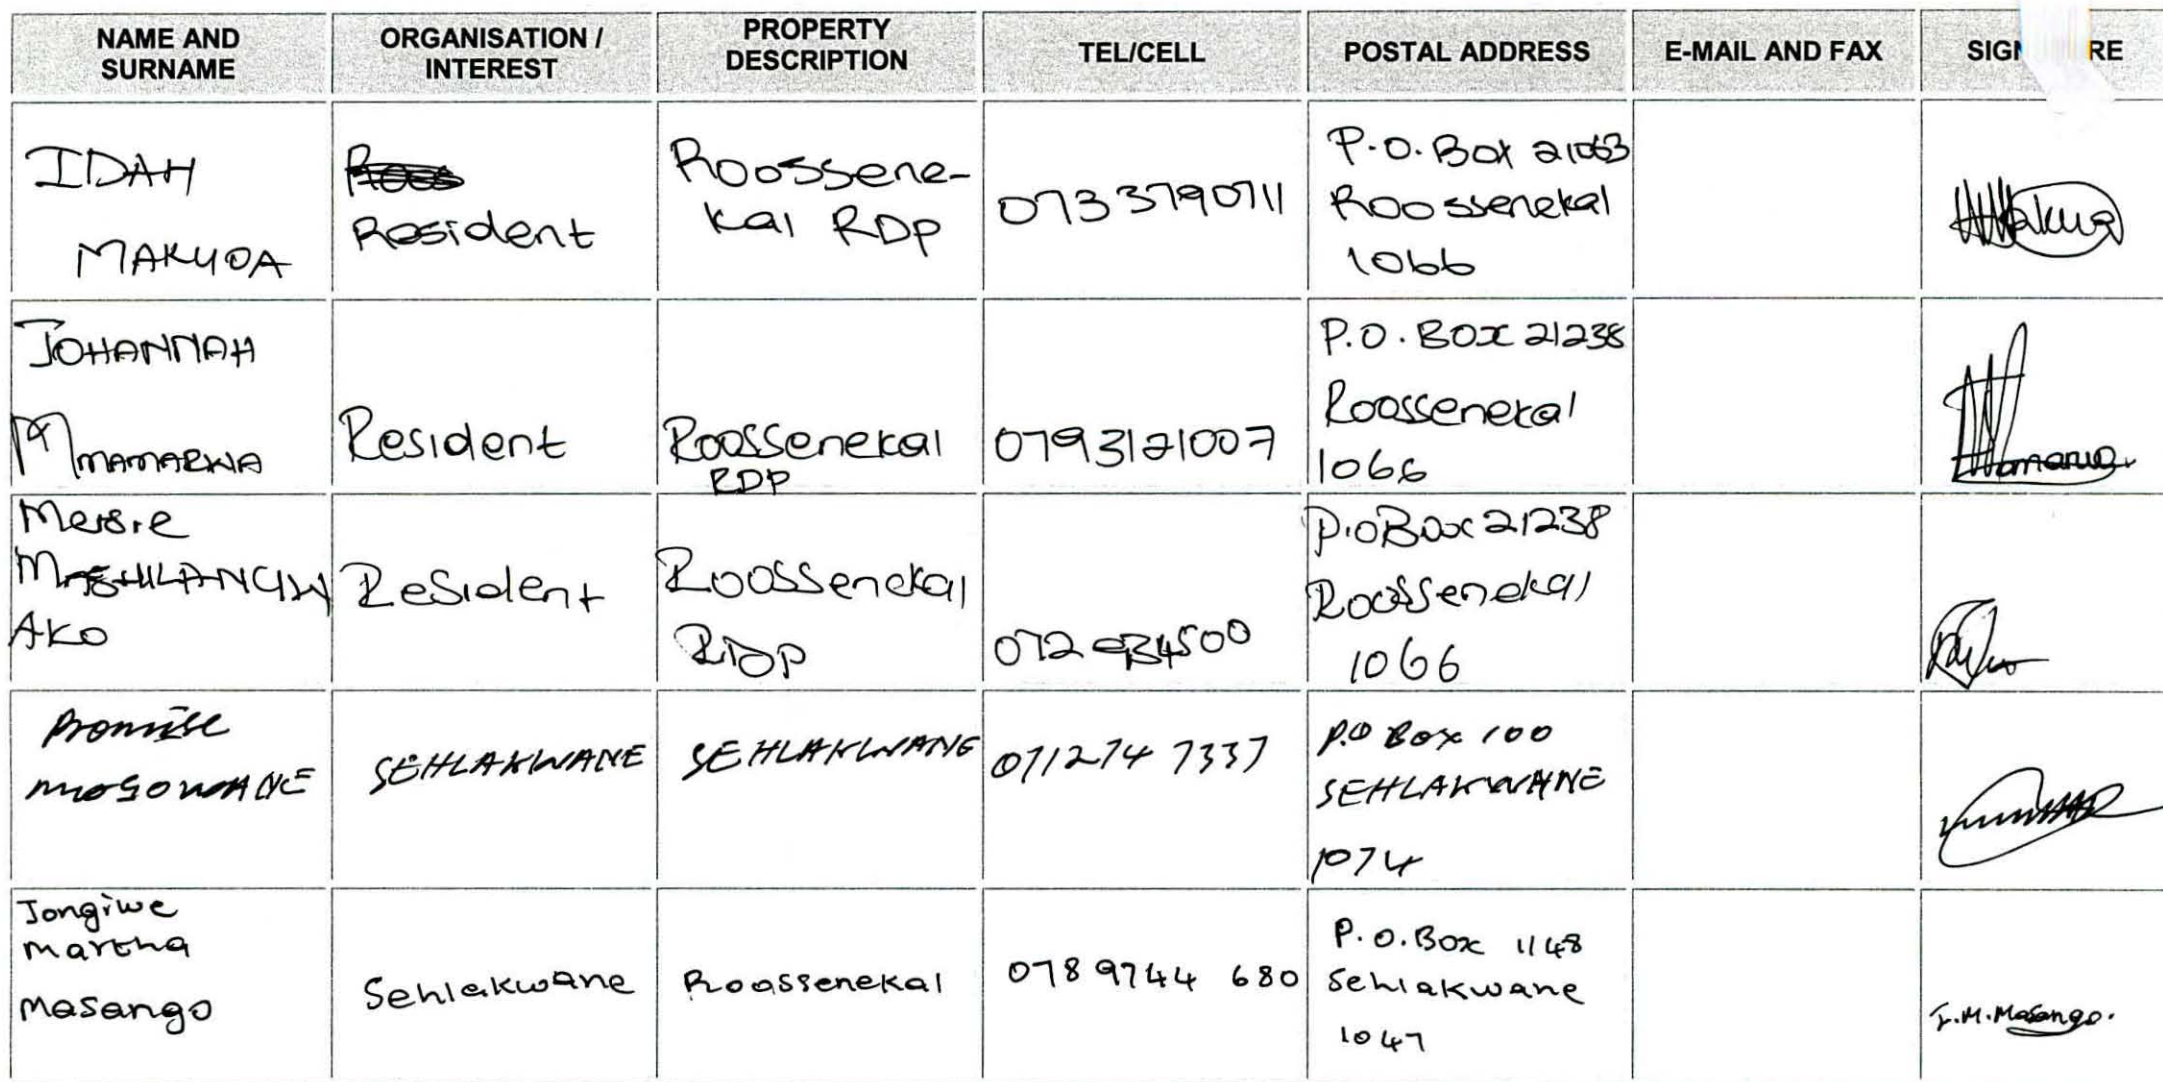 NAME AND SURNAME
ORGANISATION / INTEREST
PROPERTY DESCRIPTION
TEL/CELL
POSTAL ADDRESS
E-MAIL AND FAX
IDAH
MAKUOA
Resident
Roossene-
kal RDP
0733790711
P.O. Box 21063
Roossenekal
1066
JOHANNAH
MMAMARWA
Resident
Roossenekal
RDP
0793121007
P.O. BOX 21238
Roossenekal
1066
AKO
Resident
Roossenekal
RDP
P.O Box 21238
Roossenekal
1066
Promise
SEHLAKWANE
SEHLAKWANE
071274 7337
P.O Box 100
SEHLAKWANE
1074
Jongiwe
Martha
Masango
Sehlakwane
Roossenekal
0789744 680
P.O.Box 1148
Sehlakwane
1047
J.M.Masango.